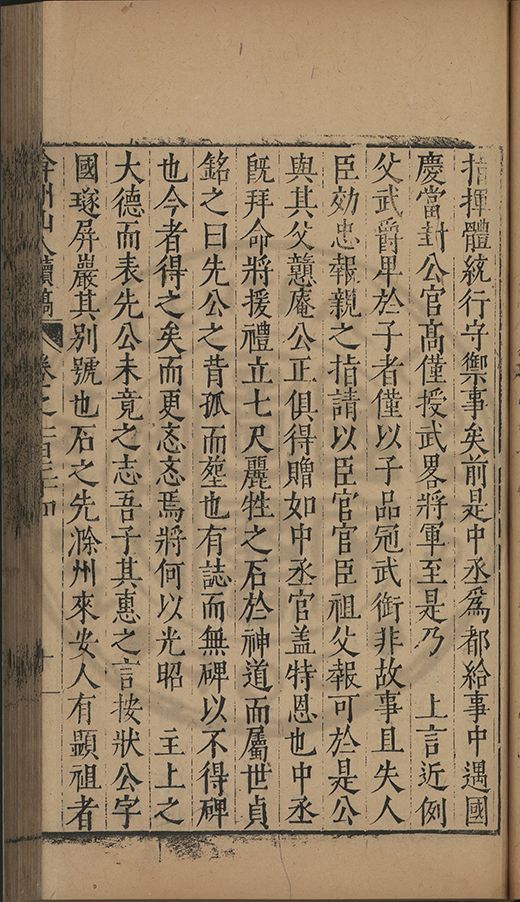 指揮體統行守禦事矣前是中丞爲都給事中遇國
慶當封公官髙僅授武畧將軍至是乃　上言近例
父武爵卑於子者僅以子品冠武銜非故事且失人
臣効忠報親之指請以臣官官臣祖父報可於是公
與其父戇庵公正俱得贈如中丞官盖特恩也中丞
旣拜命將援禮立七尺麗牲之石於神道而屬世貞
銘之曰先公之昔孤而塟也有誌而無碑以不得碑
也今者得之矣而更恣恣焉將何以光昭　主上之
大德而表先公未竟之志吾子其惠之言按狀公字
國璲屏巖其別號也石之先滁州來安人有顯祖者
弇州山人續稿　卷之一百三十四　十一